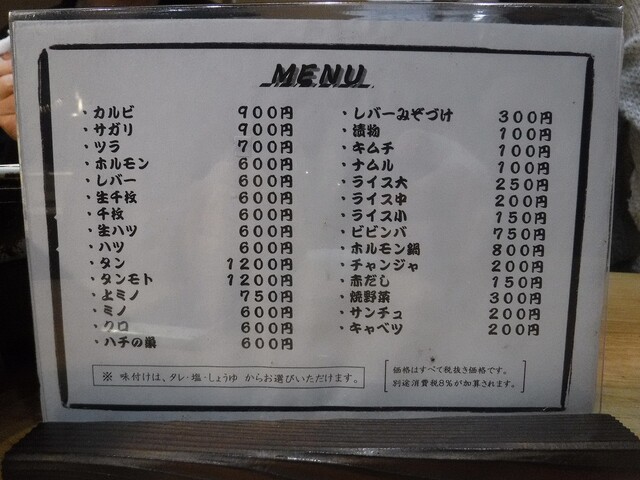 MENU
・カルビ 900円
・サガリ 900円
・ツラ 700円
・ホルモン 600円
・レバー 600円
・生千枚 600円
・千枚 600円
・生ハツ 600円
・ハツ 600円
・タン 1200円
・タンモト 1200円
・上ミノ 750円
・ミノ 600円
・クロ 600円
・ハチの巣 600円
※ 味付けは、タレ・塩・しょうゆ からお選びいただけます。
・レバーみそづけ 300円
・漬物 100円
・キムチ 100円
・ナムル 100円
・ライス大 250円
・ライス中 200円
・ライス小 150円
・ビビンバ 750円
・ホルモン鍋 800円
・チャンジャ 200円
・赤だし 150円
・焼野菜 300円
・サンチュ 200円
・キャベツ 200円
価格はすべて税抜き価格です。
別途消費税8%が加算されます。